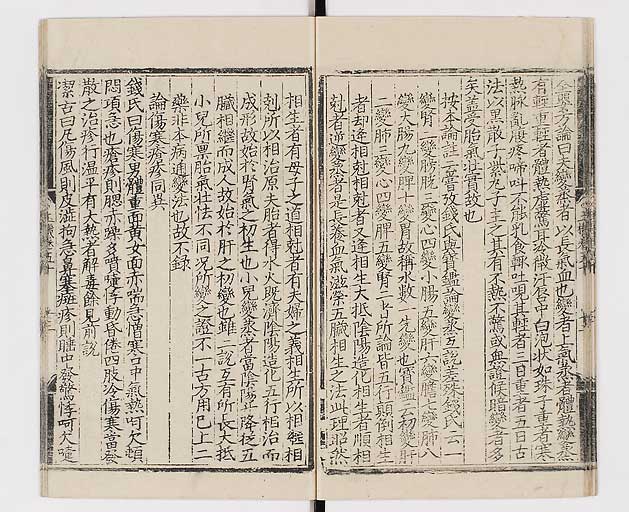 全嬰方論曰夫變蒸者以長氣血也變者上氣蒸者體熱變蒸
有輕重輕者體熱虛驚耳冷微汗唇中白泡狀如珠子重者寒
熱脉亂腹疼啼叫不能乳食輒吐哯其輕者三日重者五日古
法以黑散子紫丸子主之其有不熱不驚或無證候暗變者多
矣盖受胎氣壯實故也
按本論註云嘗攷錢氏與寶鑑論變蒸互說差殊錢氏云一
變腎二變膀胱三變心四變小腸五變肝六變膽七變肺八
變大腸九變脾十變胃故稱水數一先變也寶鑑云初變肝
二變肺三變心四變脾五變腎二書所論皆五行顛倒相生
者却逢相尅相尅者又逢相生大抵陰陽造化相生者順相
尅者逆變蒸者是長養血氣滋榮五臟相生之法此理昭然
相生者有母子之道相尅者有夫婦之義相生所以相繼相
尅所以相治原夫胎者得水火既濟陰陽造化五行相治而
成形故始於腎氣之初生也小兒變蒸者當陰陽升降極五
臟相繼而成人故始於肝之初變也雖二說互有所長大抵
小兒所禀胎氣壯怯不同况所變之證不一古方用已上二
藥非本病通變法也故不錄
論傷寒瘡疹同異
錢氏曰傷寒男體重面黃女面赤喘急憎寒口中氣熱呵欠頓
悶項急也瘡疹則腮赤躁多噴嚏悸動昏倦四肢冷傷寒當發
散之治疹行温平有大熱者解毒餘見前說
潔古曰凡傷風則皮澁拘急鼻塞班疹則腫中發驚悸呵欠嚏